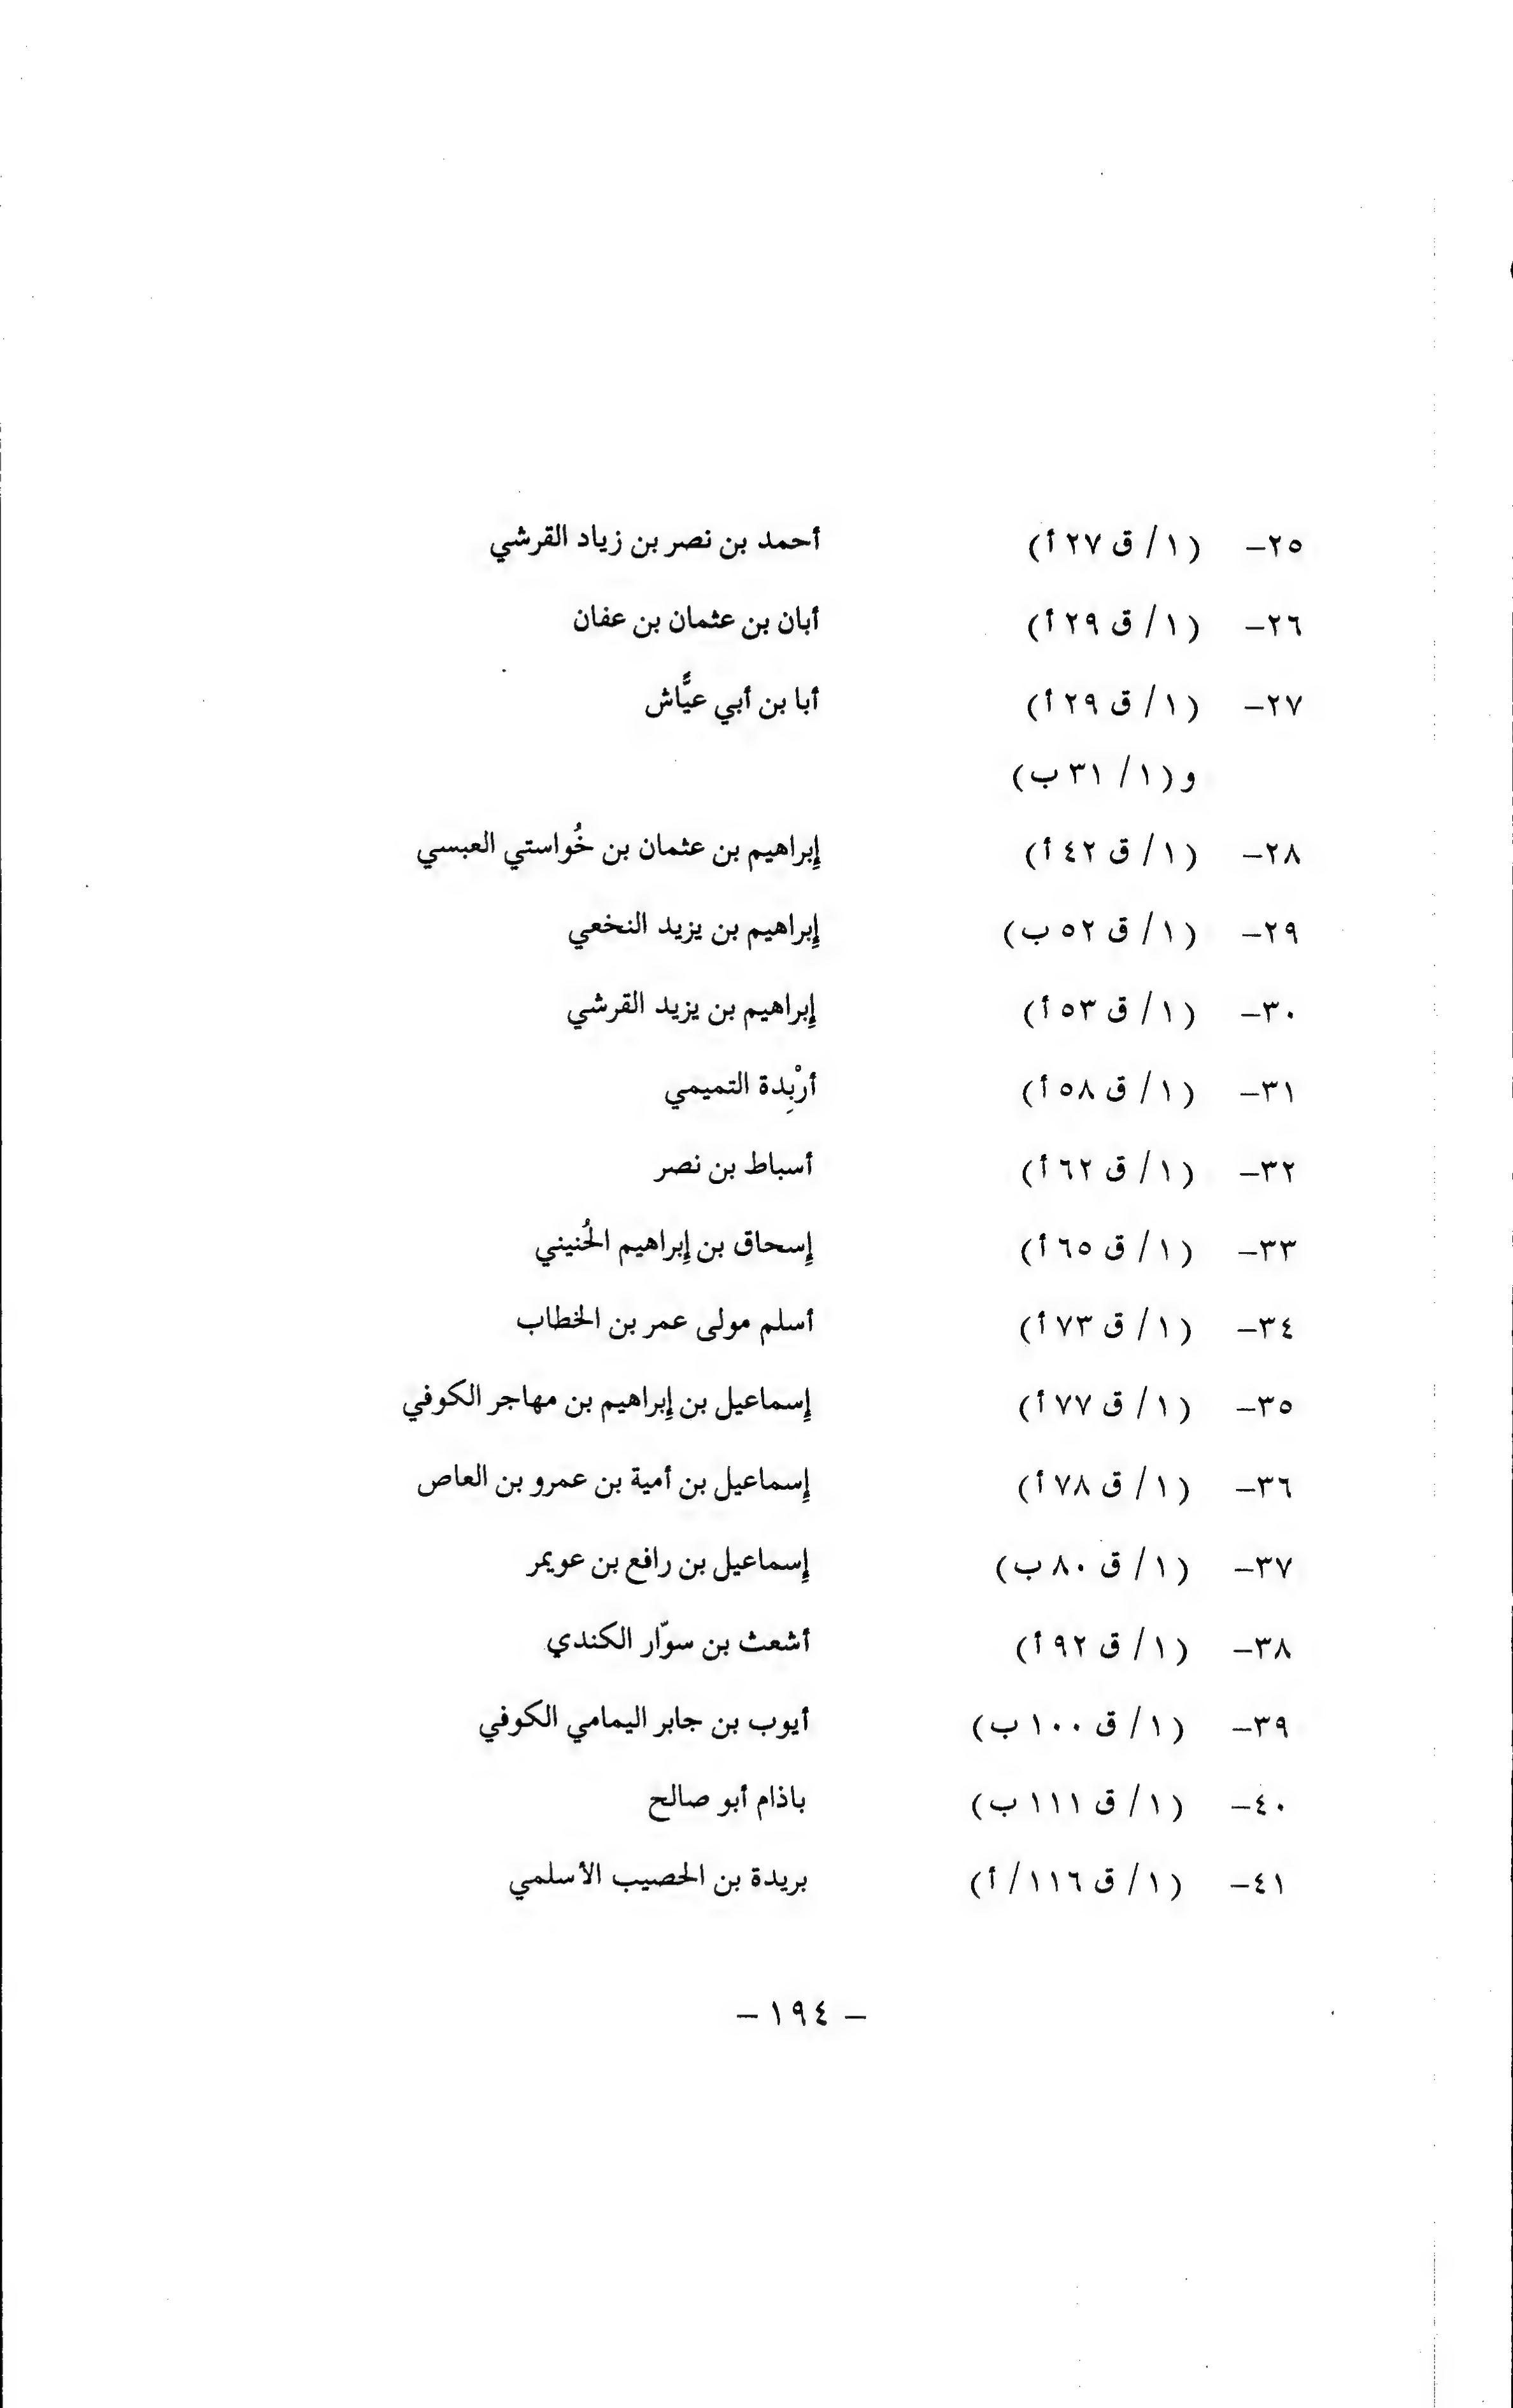 ٢٥– (١/ ق ٢٧ أ) أحمد بن نصر بن زياد القرشي
٢٦– (١/ ق ٢٩ أ) أبان بن عثمان بن عفان
٢٧– (١/ ق ٢٩ أ) أبا بن أبي عيَّاش
و (١/ ٣١ ب)
٢٨– (١/ ق ٤٢ أ) إبراهيم بن عثمان بن خُواستي العبسي
٢٩– (١/ ق ٥٢ ب) إبراهيم بن يزيد النخعي
٣٠– (١/ ق ٥٣ أ) إبراهيم بن يزيد القرشي
٣١– (١/ ق ٥٨ أ) أرْبِدة التميمي
٣٢– (١/ ق ٦٢ أ) أسباط بن نصر
٣٣– (١/ ق ٦٥ أ) إسحاق بن إبراهيم الحُنيني
٣٤– (١/ ق ٧٣ أ) أسلم مولى عمر بن الخطاب
٣٥– (١/ ق ٧٧ أ) إسماعيل بن إبراهيم بن مهاجر الكوفي
٣٦– (١/ ق ٧٨ أ) إسماعيل بن أمية بن عمرو بن العاص
٣٧– (١/ ق ٨٠ ب) إسماعيل بن رافع بن عويمر
٣٨– (١/ ق ٩٢ أ) أشعث بن سوّار الكندي
٣٩– (١/ ق ١٠٠ ب) أيوب بن جابر اليمامي الكوفي
٤٠– (١/ ق ١١١ ب) باذام أبو صالح
٤١– (١/ ق ١١٦/ أ) بريدة بن الحصيب الأسلمي
– ١٩٤ –